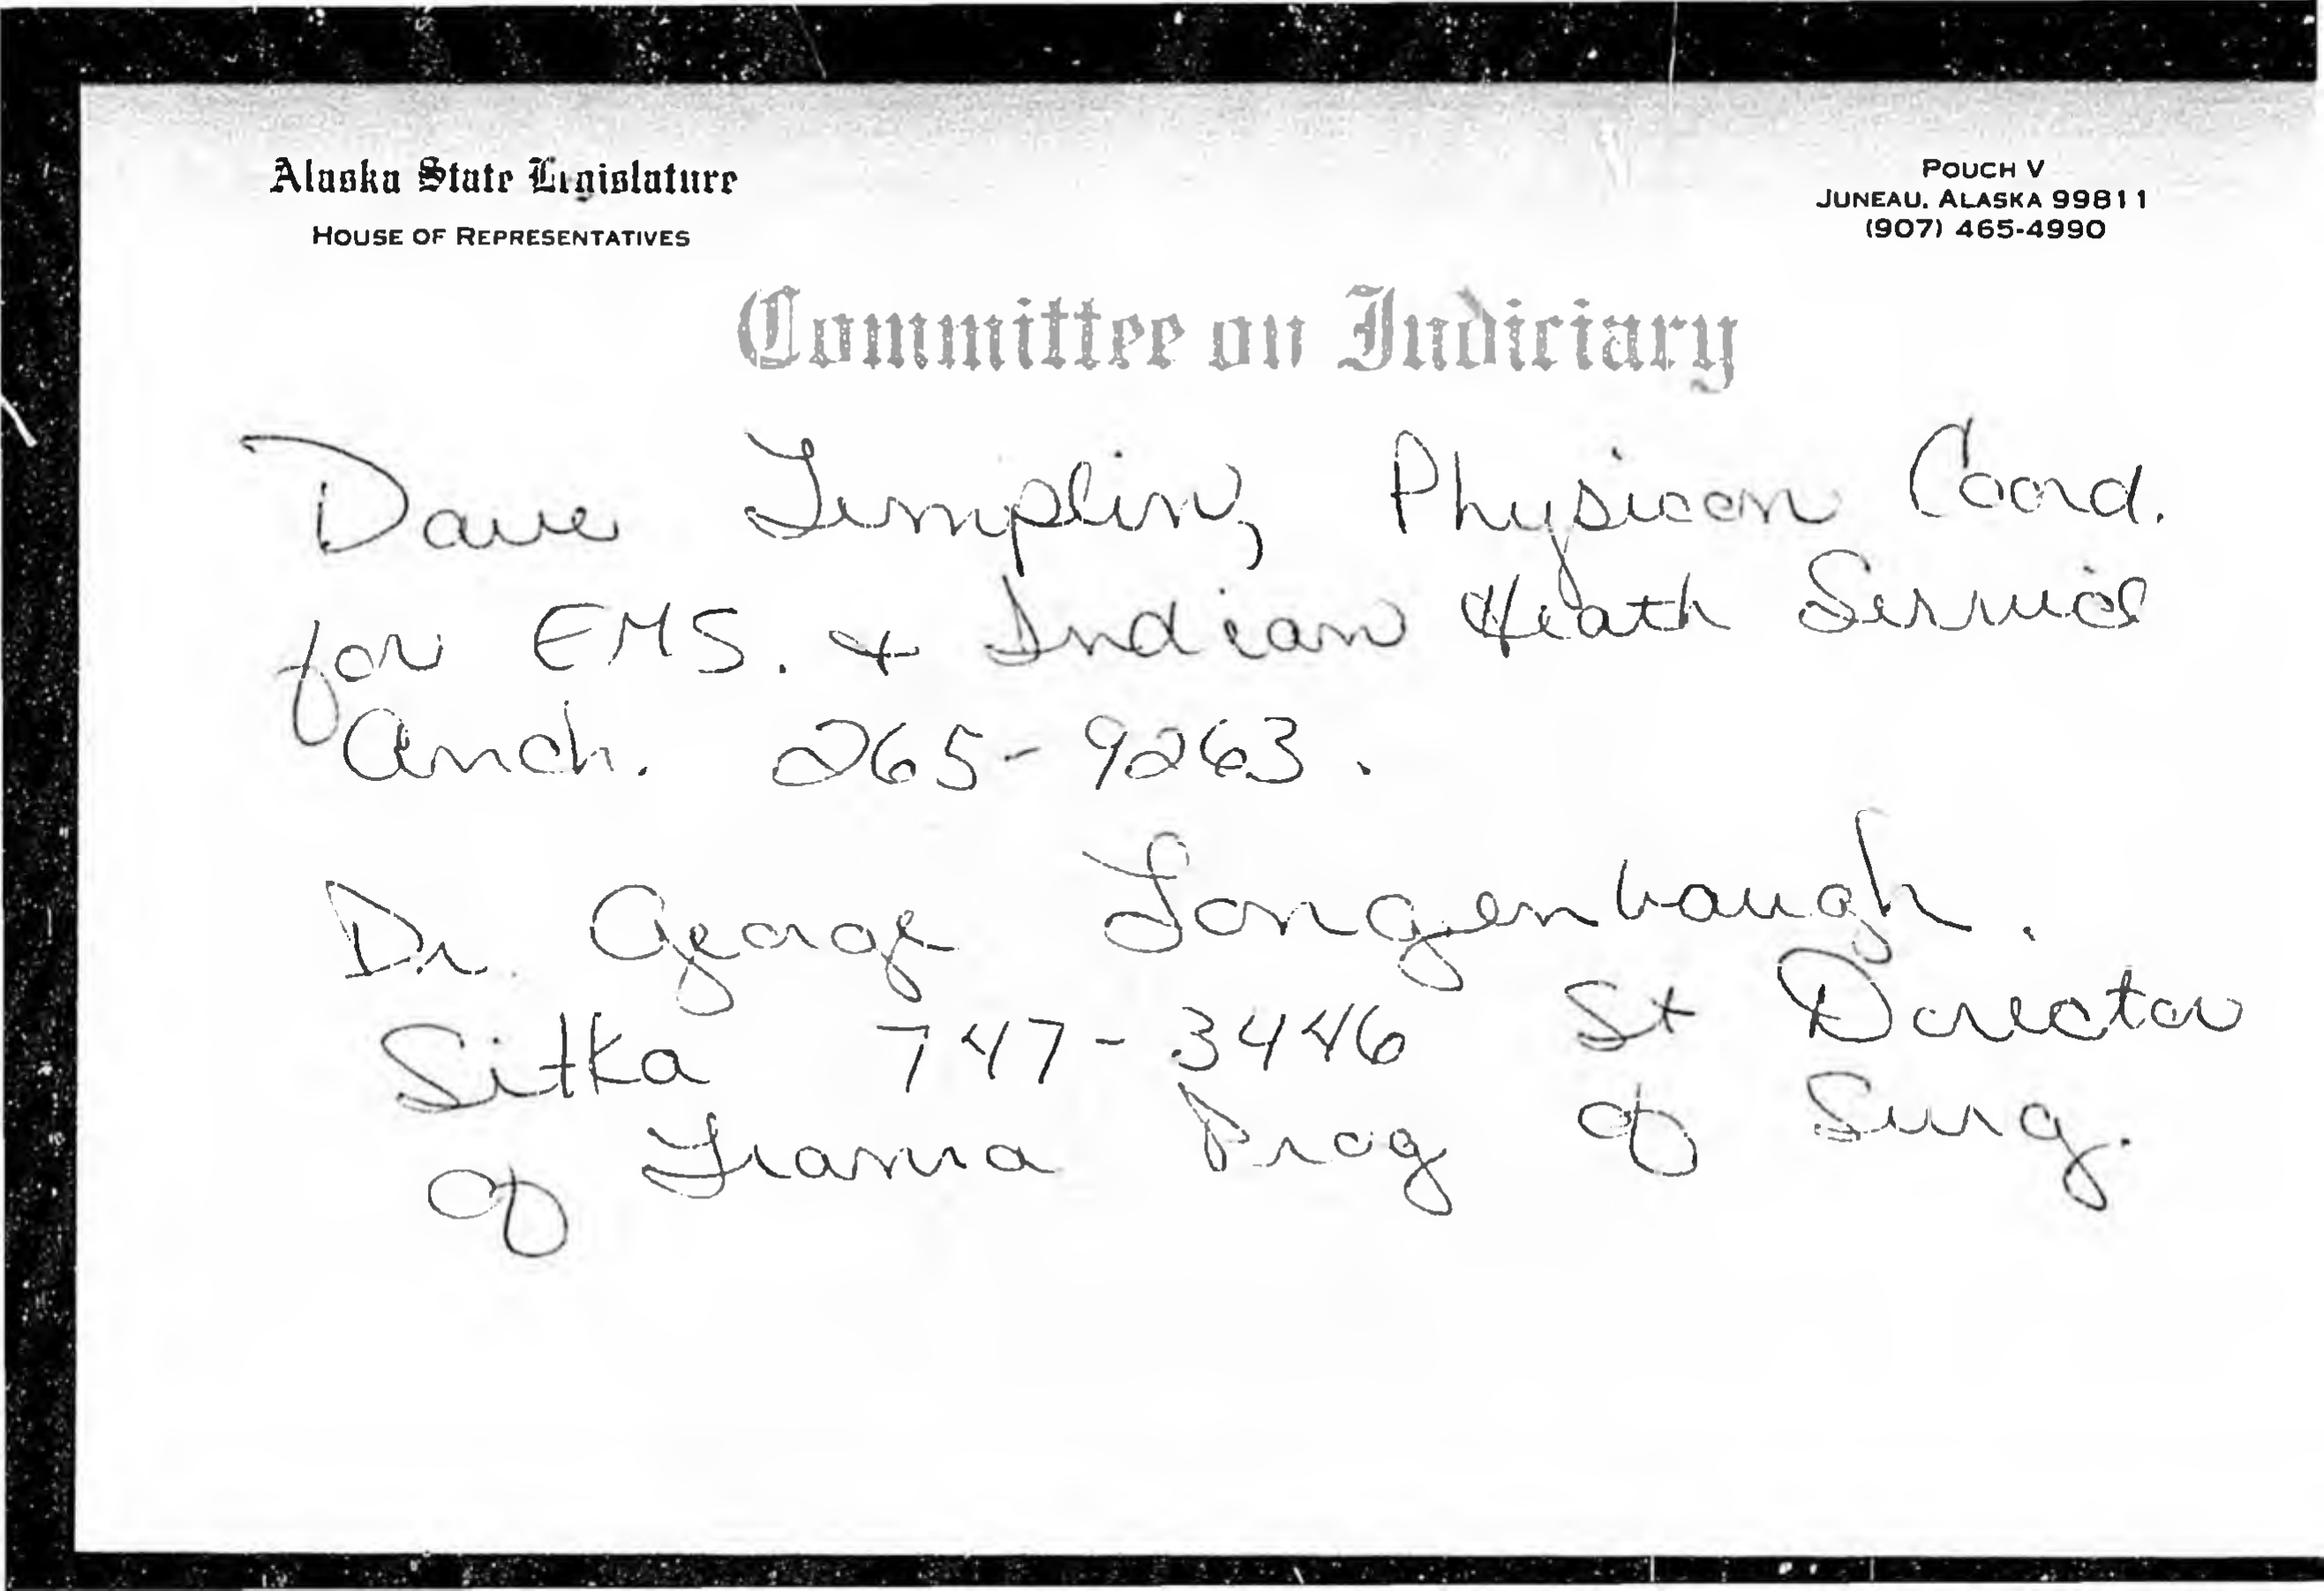 Alaska State Legislature
HOUSE OF REPRESENTATIVES
POUCH V
JUNEAU, ALASKA 99811
(907) 465-4990
Committee on Judiciary
Dave Templin, Physician Coord.
for EMS. & Indian Heath Service
Anch. 265-9263.
Dr. George Longenbaugh.
Sitka 747-3446 St Director
of Trama Prog of Surg.